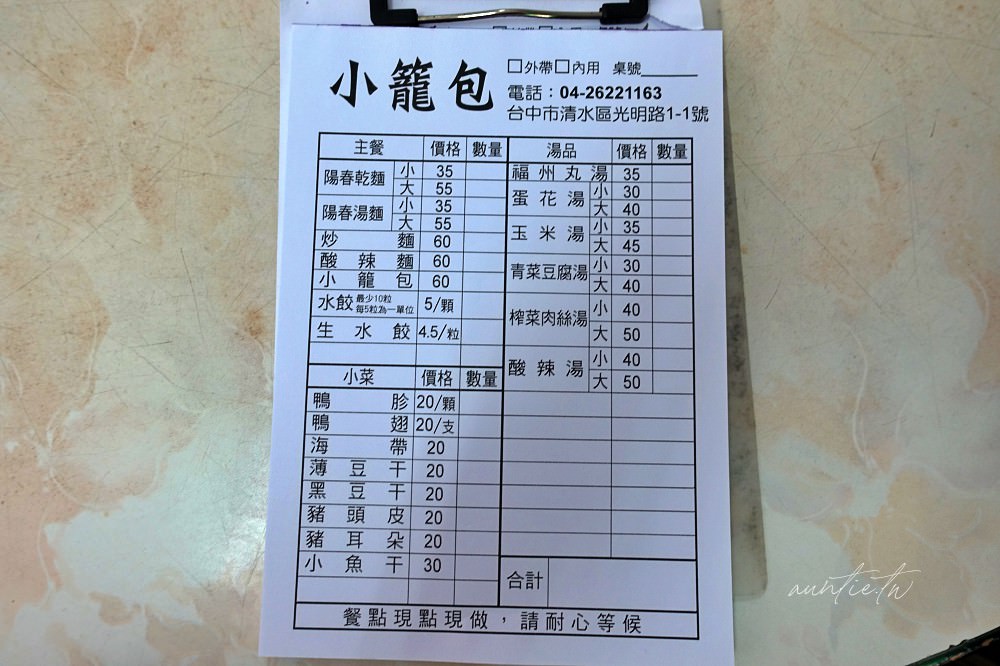 小籠包
□外帶□內用 桌號
電話：04-26221163
台中市清水區光明路1-1號
主餐 價格 數量
陽春乾麵 小 35
大 55
陽春湯麵 小 35
大 55
炒麵 60
酸辣麵 60
小籠包 60
水餃 最少10粒 每5粒為一單位 5/顆
生水餃 4.5/粒
小菜 價格 數量
鴨胗 20/顆
鴨翅 20/支
海帶 20
薄豆干 20
黑豆干 20
豬頭皮 20
豬耳朵 20
小魚干 30
湯品 價格 數量
福州丸湯 35
蛋花湯 小 30
大 40
玉米湯 小 35
大 45
青菜豆腐湯 小 30
大 40
榨菜肉絲湯 小 40
大 50
酸辣湯 小 40
大 50
合計
餐點現點現做，請耐心等候
auntie.tw